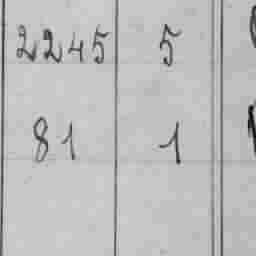 2245 5
81 1